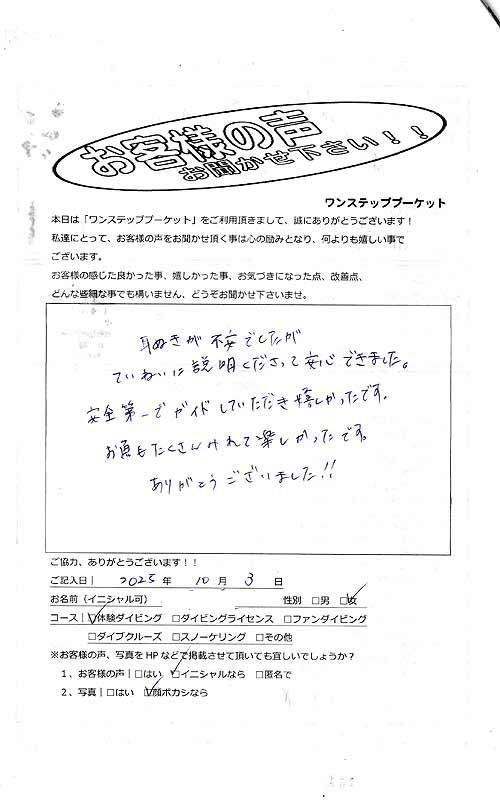 お客様の声
お聞かせ下さい！！
ワンステッププーケット
本日は「ワンステッププーケット」をご利用頂きまして、誠にありがとうございます！
私達にとって、お客様の声をお聞かせ頂く事は心の励みとなり、何よりも嬉しい事で
ございます。
お客様の感じた良かった事、嬉しかった事、お気づきになった点、改善点、
どんな些細な事でも構いません、どうぞお聞かせ下さいませ。
耳ぬきが不安でしたが
ていねいに説明くださって安心できました。
安全第一でガイドしていただき嬉しかったです。
お魚もたくさんみれて楽しかったです。
ありがとうございました!!
ご協力、ありがとうございます！！
ご記入日| 2025 年 10 月 3 日
お名前（イニシャル可） 性別 □男 □女
コース| □体験ダイビング □ダイビングライセンス □ファンダイビング
□ダイブクルーズ □スノーケリング □その他
※お客様の声、写真をHPなどで掲載させて頂いても宜しいでしょうか？
1、お客様の声| □はい □イニシャルなら □匿名で
2、写真| □はい □顔ボカシなら